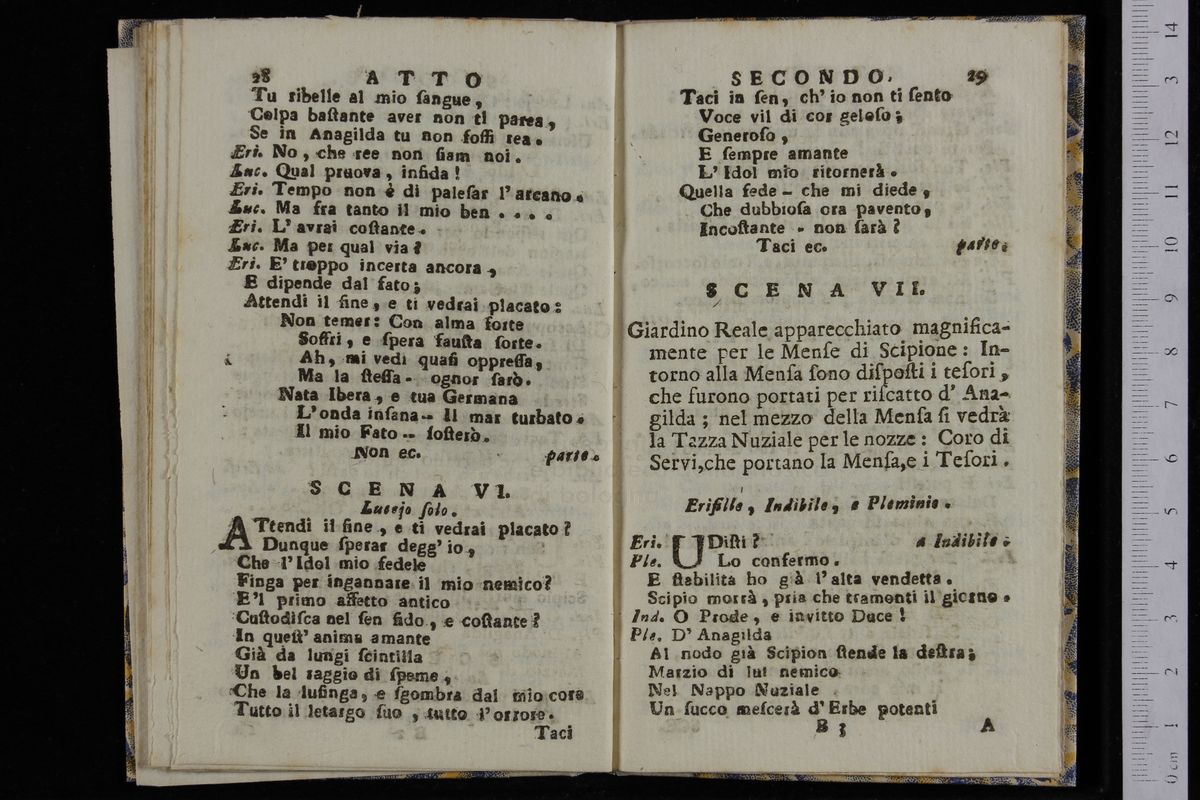 28 ATTO
Tu ribelle al mio ſangue,
Colpa baſtante aver non ti parea,
Se in Anagilda tu non foſſi rea.
Eri. No, che ree non ſiam noi.
Luc. Qual pruova, infida!
Eri. Tempo non è di paleſar l'arcano.
Luc. Ma fra tanto il mio ben . . . .
Eri. L'avrai coſtante.
Luc. Ma per qual via?
Eri. E' troppo incerta ancora,
E dipende dal fato;
Attendi il fine, e ti vedrai placato:
Non temer: Con alma forte
Soffri, e ſpera fauſta ſorte.
Ah, mi vedi quaſi oppreſſa,
Ma la ſteſſa- ognor ſarò.
Nata Ibera, e tua Germana
L'onda inſana-- Il mar turbato.
Il mio Fato -- ſoſterò.
Non ec. parte.
SCENA VI.
Lucejo ſolo.
ATtendi il fine, e ti vedrai placato?
Dunque ſperar degg'io,
Che l'Idol mio fedele
Finga per ingannare il mio nemico?
E'l primo affetto antico
Cuſtodiſca nel ſen fido, e coſtante?
In queſt'anima amante
Già da lungi ſcintilla
Un bel raggio di ſpeme,
Che la luſinga, e ſgombra dal mio core
Tutto il letargo ſuo, tutto l'orrore.
Taci
SECONDO. 29
Taci in ſen, ch'io non ti ſento
Voce vil di cor geloſo;
Generoſo,
E ſempre amante
L'Idol mio ritornerà.
Quella fede - che mi diede,
Che dubbioſa ora pavento,
Incoſtante - non ſarà?
Taci ec. parte.
SCENA VII.
Giardino Reale apparecchiato magnifica-
mente per le Menſe di Scipione: In-
torno alla Menſa ſono diſpoſti i teſori,
che furono portati per riſcatto d'Ana-
gilda; nel mezzo della Menſa ſi vedrà
la Tazza Nuziale per le nozze: Coro di
Servi,che portano la Menſa,e i Teſori.
Erifille, Indibile, e Pleminio.
Eri. UDiſti? a Indibile.
Ple. Lo confermo.
E ſtabilita ho già l'alta vendetta.
Scipio morrà, pria che tramonti il giorno.
Ind. O Prode, e invitto Duce!
Ple. D'Anagilda
Al nodo già Scipion ſtende la deſtra;
Marzio di lui nemico
Nel Nappo Nuziale
Un ſucco meſcerà d'Erbe potenti
B 3 A
0 cm 1 2 3 4 5 6 7 8 9 10 11 12 3 14